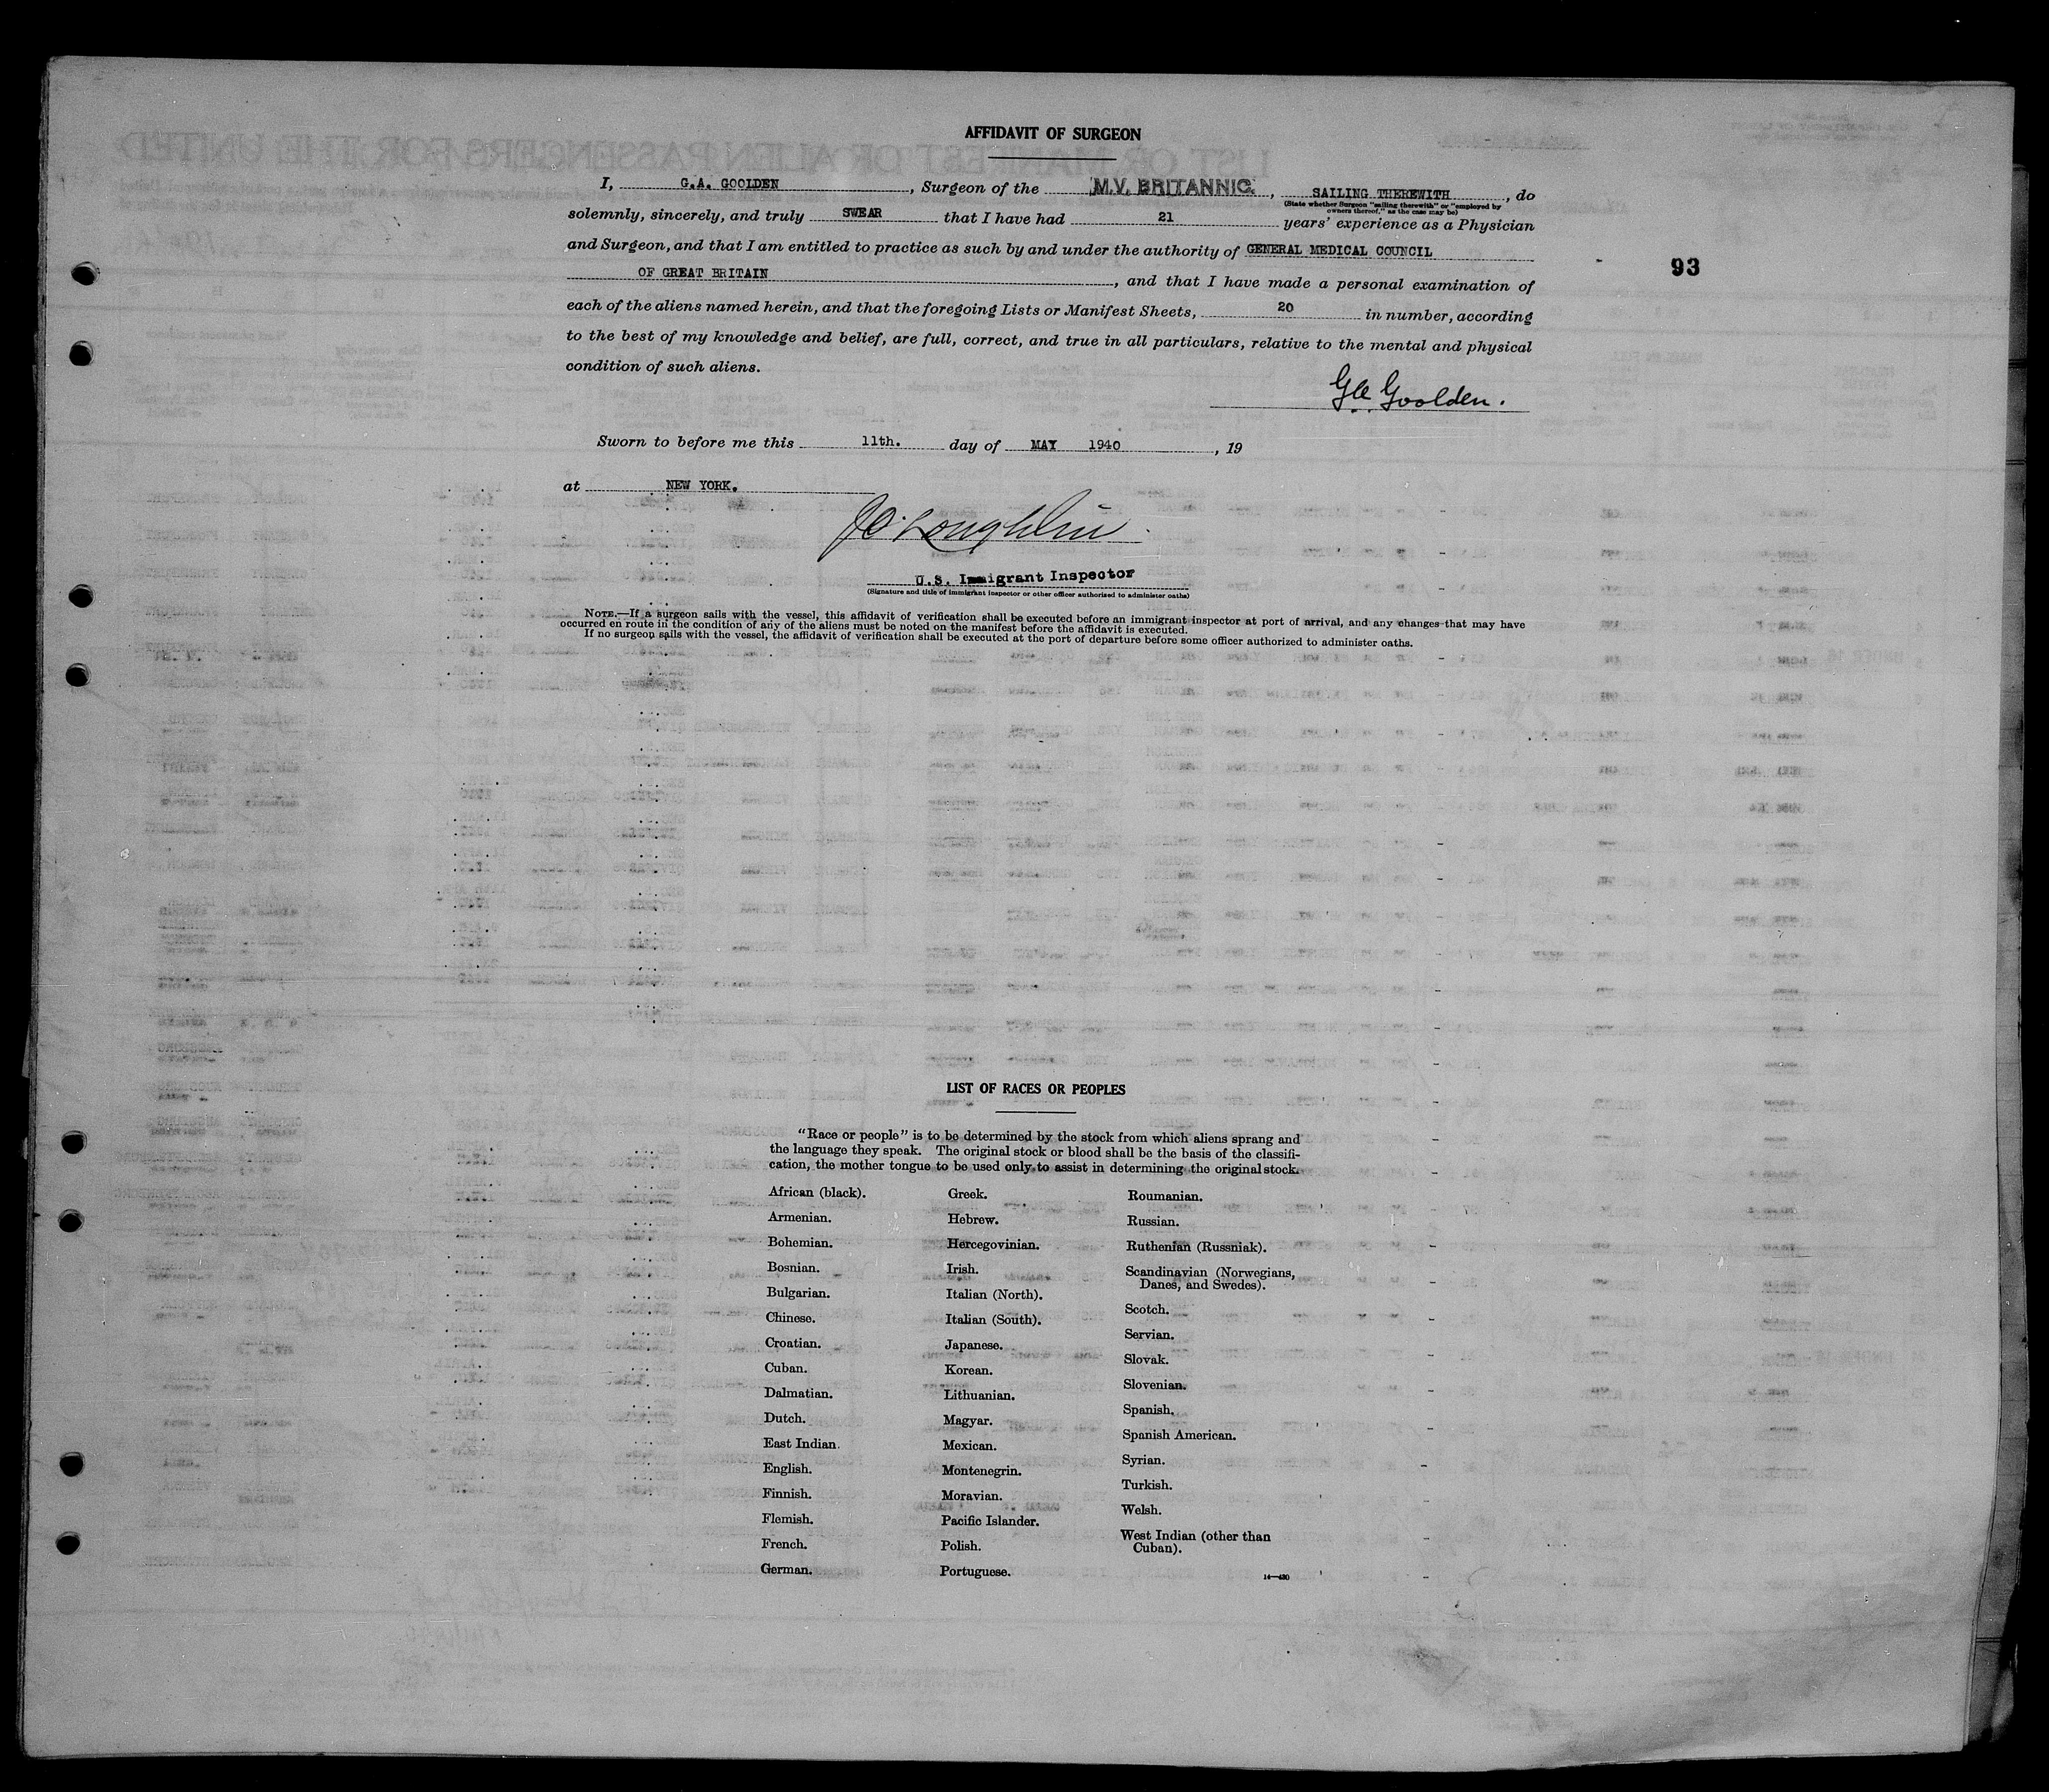 AFFIDAVIT OF SURGEON
I, G.A. GOOLDEN, Surgeon of the M.V. BRITANNIC, SAILING THEREWITH, do
(State whether Surgeon "sailing therewith" or "employed by owners thereof," as the case may be)
solemnly, sincerely, and truly SWEAR that I have had 21 years' experience as a Physician
and Surgeon, and that I am entitled to practice as such by and under the authority of GENERAL MEDICAL COUNCIL
OF GREAT BRITAIN, and that I have made a personal examination of
93
each of the aliens named herein, and that the foregoing Lists or Manifest Sheets, 20 in number, according
to the best of my knowledge and belief, are full, correct, and true in all particulars, relative to the mental and physical
condition of such aliens.
Goolden.
Sworn to before me this 11th. day of MAY 1940, 19
at NEW YORK.
U.S. Immigrant Inspector
(Signature and title of immigrant inspector or other officer authorized to administer oaths)
NOTE.—If a surgeon sails with the vessel, this affidavit of verification shall be executed before an immigrant inspector at port of arrival, and any changes that may have
occurred en route in the condition of any of the aliens must be noted on the manifest before the affidavit is executed.
If no surgeon sails with the vessel, the affidavit of verification shall be executed at the port of departure before some officer authorized to administer oaths.
LIST OF RACES OR PEOPLES
"Race or people" is to be determined by the stock from which aliens sprang and
the language they speak. The original stock or blood shall be the basis of the classifi-
cation, the mother tongue to be used only to assist in determining the original stock.
African (black).
Armenian.
Bohemian.
Bosnian.
Bulgarian.
Chinese.
Croatian.
Cuban.
Dalmatian.
Dutch.
East Indian.
English.
Finnish.
Flemish.
French.
German.
Greek.
Hebrew.
Hercegovinian.
Irish.
Italian (North).
Italian (South).
Japanese.
Korean.
Lithuanian.
Magyar.
Mexican.
Montenegrin.
Moravian.
Pacific Islander.
Polish.
Portuguese.
Roumanian.
Russian.
Ruthenian (Russniak).
Scandinavian (Norwegians,
Danes, and Swedes).
Scotch.
Servian.
Slovak.
Slovenian.
Spanish.
Spanish American.
Syrian.
Turkish.
Welsh.
West Indian (other than
Cuban).
14—430